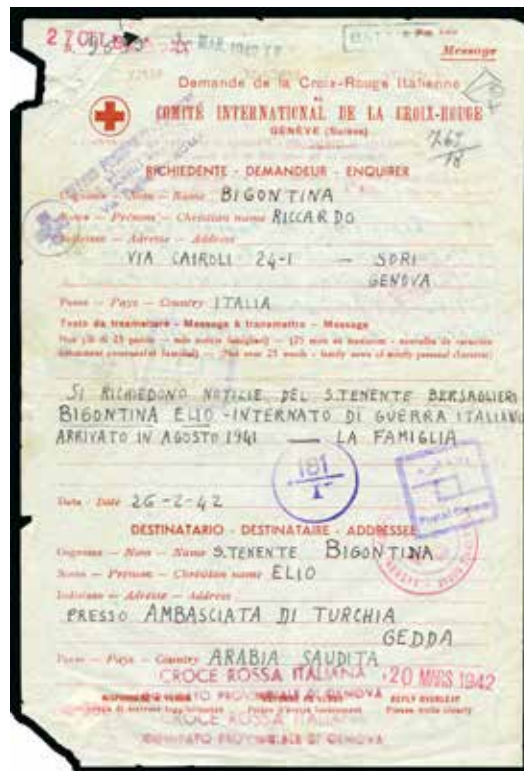 27 OCT
MAR. 1942
Message
Demande de la Croix-Rouge Italienne
AU
COMITÉ INTERNATIONAL DE LA CROIX-ROUGE
GENÈVE (Suisse)
RICHIEDENTE - DEMANDEUR - ENQUIRER
Nom - Name BIGONTINA
Prénom - Christian name RICCARDO
Indirizzo - Adresse - Address
VIA CAIROLI 24-1 — SORI
GENOVA
Paese - Pays - Country ITALIA
Testo da trasmettere - Message à transmettre - Message
SI RICHIEDONO NOTIZIE DEL S.TENENTE BERSAGLIERI
BIGONTINA ELIO - INTERNATO DI GUERRA ITALIANO
ARRIVATO IN AGOSTO 1941 — LA FAMIGLIA
181
Data - Date 26-2-42
DESTINATARIO - DESTINATAIRE - ADDRESSEE
Cognome - Nom - Name S.TENENTE BIGONTINA
Nome - Prénom - Christian name ELIO
Indirizzo - Adresse - Address
PRESSO AMBASCIATA DI TURCHIA
GEDDA
Paese - Pays - Country ARABIA SAUDITA
CROCE ROSSA ITALIANA 20 MARS 1942
REPLY OVERLEAF
Please write clearly
CROCE ROSSA ITALIANA
COMITATO PROVINCIALE DI GENOVA